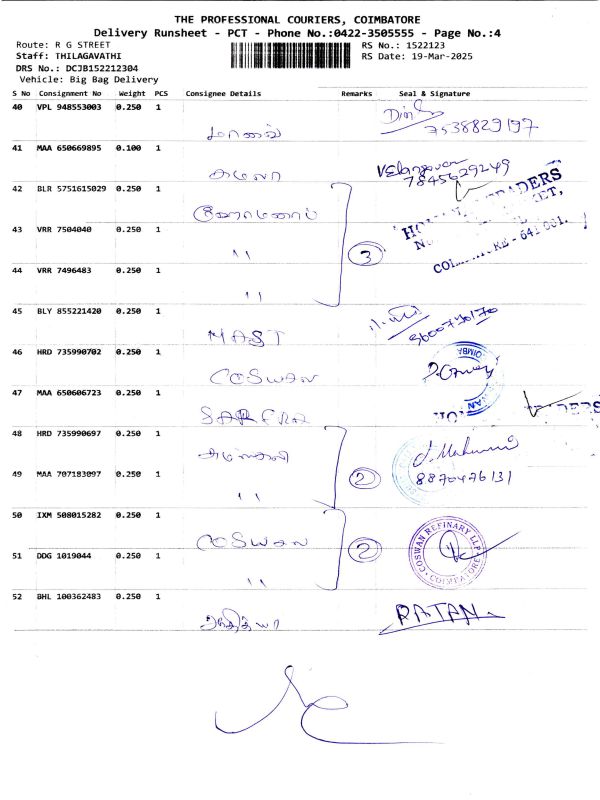 THE PROFESSIONAL COURIERS, COIMBATORE
Delivery Runsheet - PCT - Phone No.:0422-3505555 - Page No.:4
Route: R G STREET RS No.: 1522123
Staff: THILAGAVATHI RS Date: 19-Mar-2025
DRS No.: DCJB152212304
Vehicle: Big Bag Delivery
S No Consignment No Weight PCS Consignee Details Remarks Seal & Signature
40 VPL 948553003 0.250 1
7538829197
41 MAA 650669895 0.100 1
7845629249
42 BLR 5751615029 0.250 1
43 VRR 7504040 0.250 1
" 3
44 VRR 7496483 0.250 1
"
45 BLY 855221420 0.250 1
MAST
46 HRD 735990702 0.250 1
47 MAA 650606723 0.250 1
48 HRD 735990697 0.250 1
49 MAA 707183097 0.250 1 2 8870476131
"
50 IXM 508015282 0.250 1
2 COSWAN REFINARY LLP COIMBATORE
51 DDG 1019044 0.250 1
"
52 BHL 100362483 0.250 1
RATAN